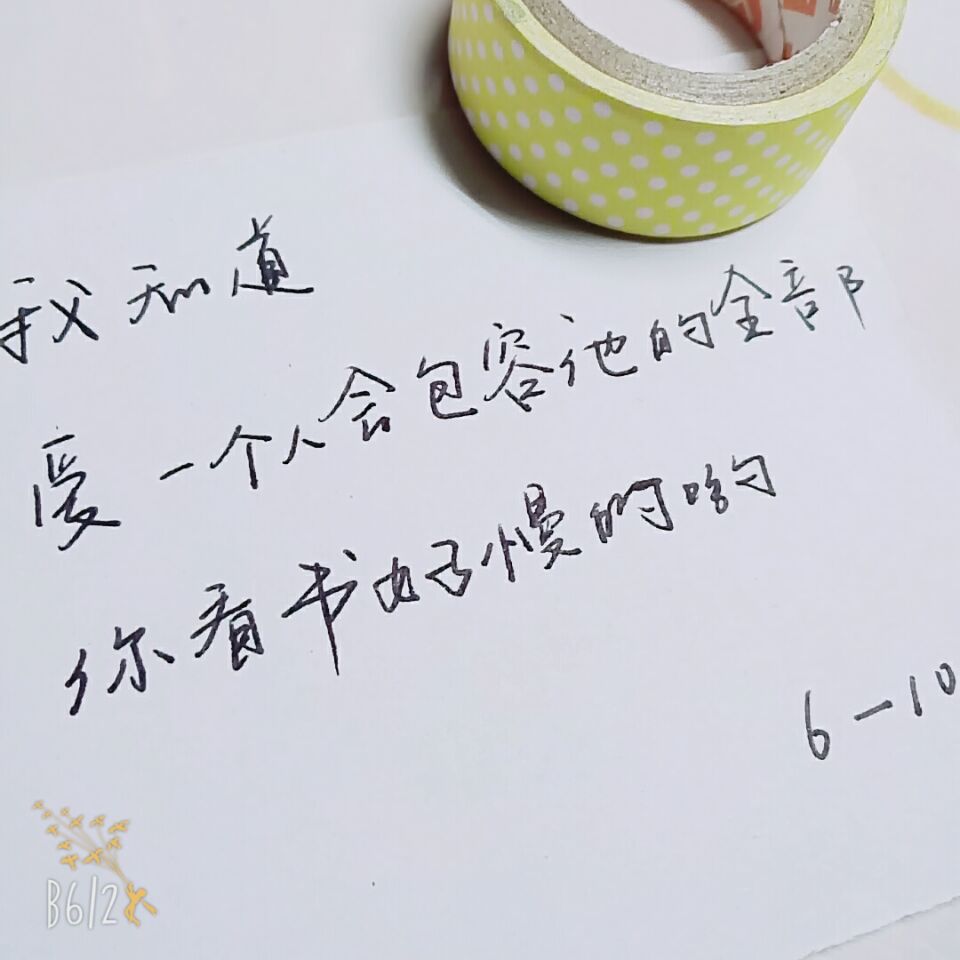 我知道
爱一个人会包容他的全部
你看书好慢的哟
6-10
B612